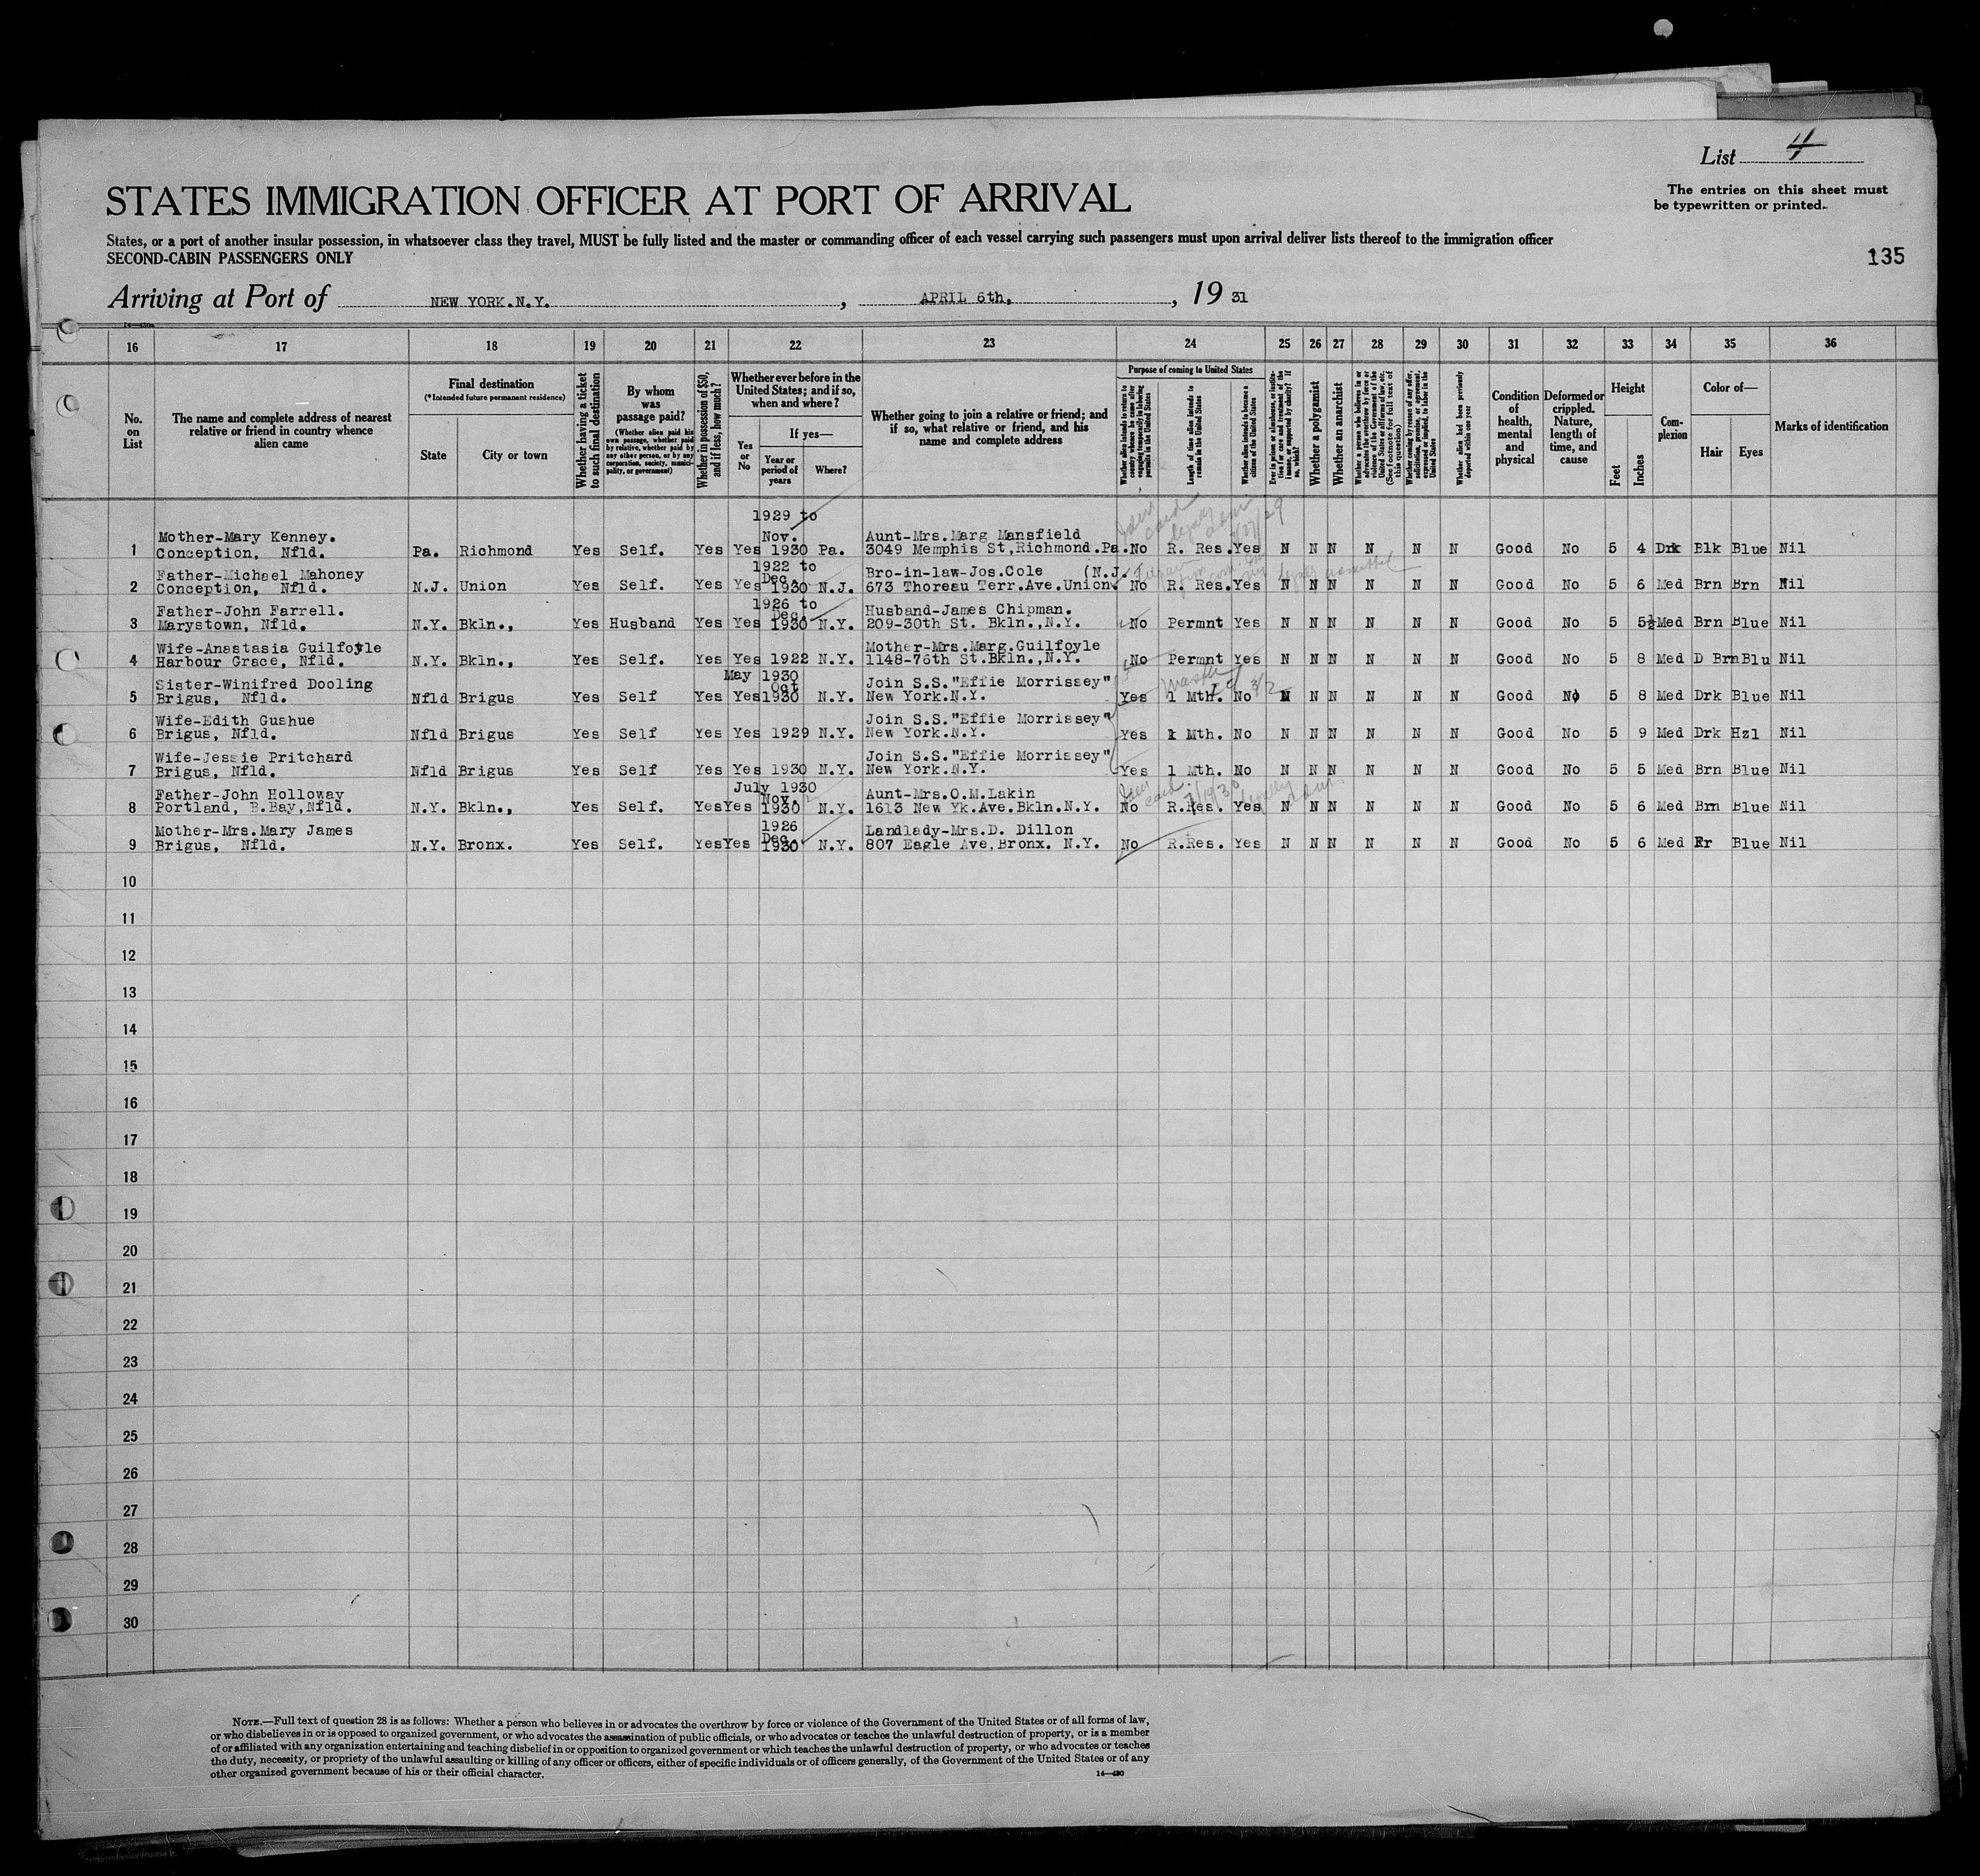 List 4
The entries on this sheet must
be typewritten or printed.
STATES IMMIGRATION OFFICER AT PORT OF ARRIVAL
States, or a port of another insular possession, in whatsoever class they travel, MUST be fully listed and the master or commanding officer of each vessel carrying such passengers must upon arrival deliver lists thereof to the immigration officer
SECOND-CABIN PASSENGERS ONLY
135
Arriving at Port of NEW YORK.N.Y. , APRIL 6th, , 19 31
14—430a
16 17 18 19 20 21 22 23 24 25 26 27 28 29 30 31 32 33 34 35 36
No.
on
List
The name and complete address of nearest
relative or friend in country whence
alien came
Final destination
(*Intended future permanent residence)
State
City or town
Whether having a ticket
to such final destination
By whom
was
passage paid?
(Whether alien paid his
own passage, whether paid
by relative, whether paid by
any other person, or by any
corporation, society, munici-
pality, or government)
Whether in possession of $50,
and if less, how much?
Whether ever before in the
United States; and if so,
when and where?
Yes
or
No
If yes—
Year or
period of
years
Where?
Whether going to join a relative or friend; and
if so, what relative or friend, and his
name and complete address
Purpose of coming to United States
Whether alien intends to return to
country whence he came after
engaging temporarily in laboring
pursuits in the United States
Length of time alien intends to
remain in the United States
Whether alien intends to become a
citizen of the United States
Ever in prison or almshouse, or institu-
tion for care and treatment of the
insane, or supported by charity? If
so, which?
Whether a polygamist
Whether an anarchist
Whether a person who believes in or
advocates the overthrow by force or
violence of the Government of the
United States or all forms of law, etc.
(See footnote for full text of
this question)
Whether coming by reason of any offer,
solicitation, promise, or agreement,
expressed or implied, to labor in the
United States
Whether alien had been previously
deported within one year
Condition
of
health,
mental
and
physical
Deformed or
crippled.
Nature,
length of
time, and
cause
Height
Feet
Inches
Com-
plexion
Color of—
Hair
Eyes
Marks of identification
1929 to
Mother-Mary Kenney. Nov. Aunt-Mrs.Marg Mansfield
1 Conception, Nfld. Pa. Richmond Yes Self. Yes Yes 1930 Pa. 3049 Memphis St,Richmond.Pa. No R. Res. Yes N N N N N N Good No 5 4 Drk Blk Blue Nil
1922 to
Father-Michael Mahoney Dec. Bro-in-law-Jos.Cole (N.J.
2 Conception, Nfld. N.J. Union Yes Self. Yes Yes 1930 N.J. 673 Thoreau Terr.Ave.Union. No R. Res. Yes N N N N N N Good No 5 6 Med Brn Brn Nil
1926 to
Father-John Farrell. Dec. Husband-James Chipman.
3 Marystown, Nfld. N.Y. Bkln., Yes Husband Yes Yes 1930 N.Y. 209-30th St. Bkln.,N.Y. No Permnt Yes N N N N N N Good No 5 5½ Med Brn Blue Nil
Wife-Anastasia Guilfoyle Mother-Mrs.Marg.Guilfoyle
4 Harbour Grace, Nfld. N.Y. Bkln., Yes Self. Yes Yes 1922 N.Y. 1148-76th St.Bkln.,N.Y. No Permnt Yes N N N N N N Good No 5 8 Med D Brn Blu Nil
May 1930
Sister-Winifred Dooling Oct Join S.S."Effie Morrissey"
5 Brigus, Nfld. Nfld Brigus Yes Self Yes Yes 1930 N.Y. New York.N.Y. Yes 1 Mth. No N N N N N N Good No 5 8 Med Drk Blue Nil
Wife-Edith Gushue Join S.S."Effie Morrissey"
6 Brigus, Nfld. Nfld Brigus Yes Self Yes Yes 1929 N.Y. New York.N.Y. Yes 1 Mth. No N N N N N N Good No 5 9 Med Drk Hzl Nil
Wife-Jessie Pritchard Join S.S."Effie Morrissey"
7 Brigus, Nfld. Nfld Brigus Yes Self Yes Yes 1930 N.Y. New York.N.Y. Yes 1 Mth. No N N N N N N Good No 5 5 Med Brn Blue Nil
July 1930
Father-John Holloway Nov. Aunt-Mrs.O.M.Lakin
8 Portland, B.Bay,Nfld. N.Y. Bkln., Yes Self. Yes Yes 1930 N.Y. 1613 New Yk.Ave.Bkln.N.Y. No R.Res. Yes N N N N N N Good No 5 6 Med Brn Blue Nil
1926
Mother-Mrs.Mary James Dec. Landlady-Mrs.D. Dillon
9 Brigus, Nfld. N.Y. Bronx. Yes Self. Yes Yes 1930 N.Y. 807 Eagle Ave,Bronx. N.Y. No R.Res. Yes N N N N N N Good No 5 6 Med Fr Blue Nil
10
11
12
13
14
15
16
17
18
19
20
21
22
23
24
25
26
27
28
29
30
NOTE.—Full text of question 28 is as follows: Whether a person who believes in or advocates the overthrow by force or violence of the Government of the United States or of all forms of law,
or who disbelieves in or is opposed to organized government, or who advocates the assassination of public officials, or who advocates or teaches the unlawful destruction of property, or is a member
of or affiliated with any organization entertaining and teaching disbelief in or opposition to organized government or which teaches the unlawful destruction of property, or who advocates or teaches
the duty, necessity, or propriety of the unlawful assaulting or killing of any officer or officers, either of specific individuals or of officers generally, of the Government of the United States or of any
other organized government because of his or their official character.
14—430